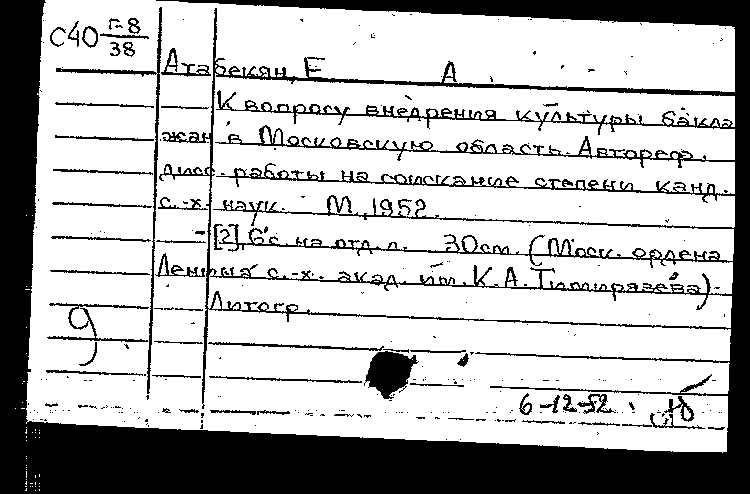 С40 Г-8
38
Атабекян, Е А.
К вопросу внедрения культуры бакла
жан в Московскую область. Автореф.
дисс. работы на соискание степени канд.
с.-х. наук. М., 1952.
- [2], 6 с. на отд. л. 30 см. (Моск. ордена
Ленина с.-х. акад. им. К. А. Тимирязева).
Литогр.
9.
6-12-52.